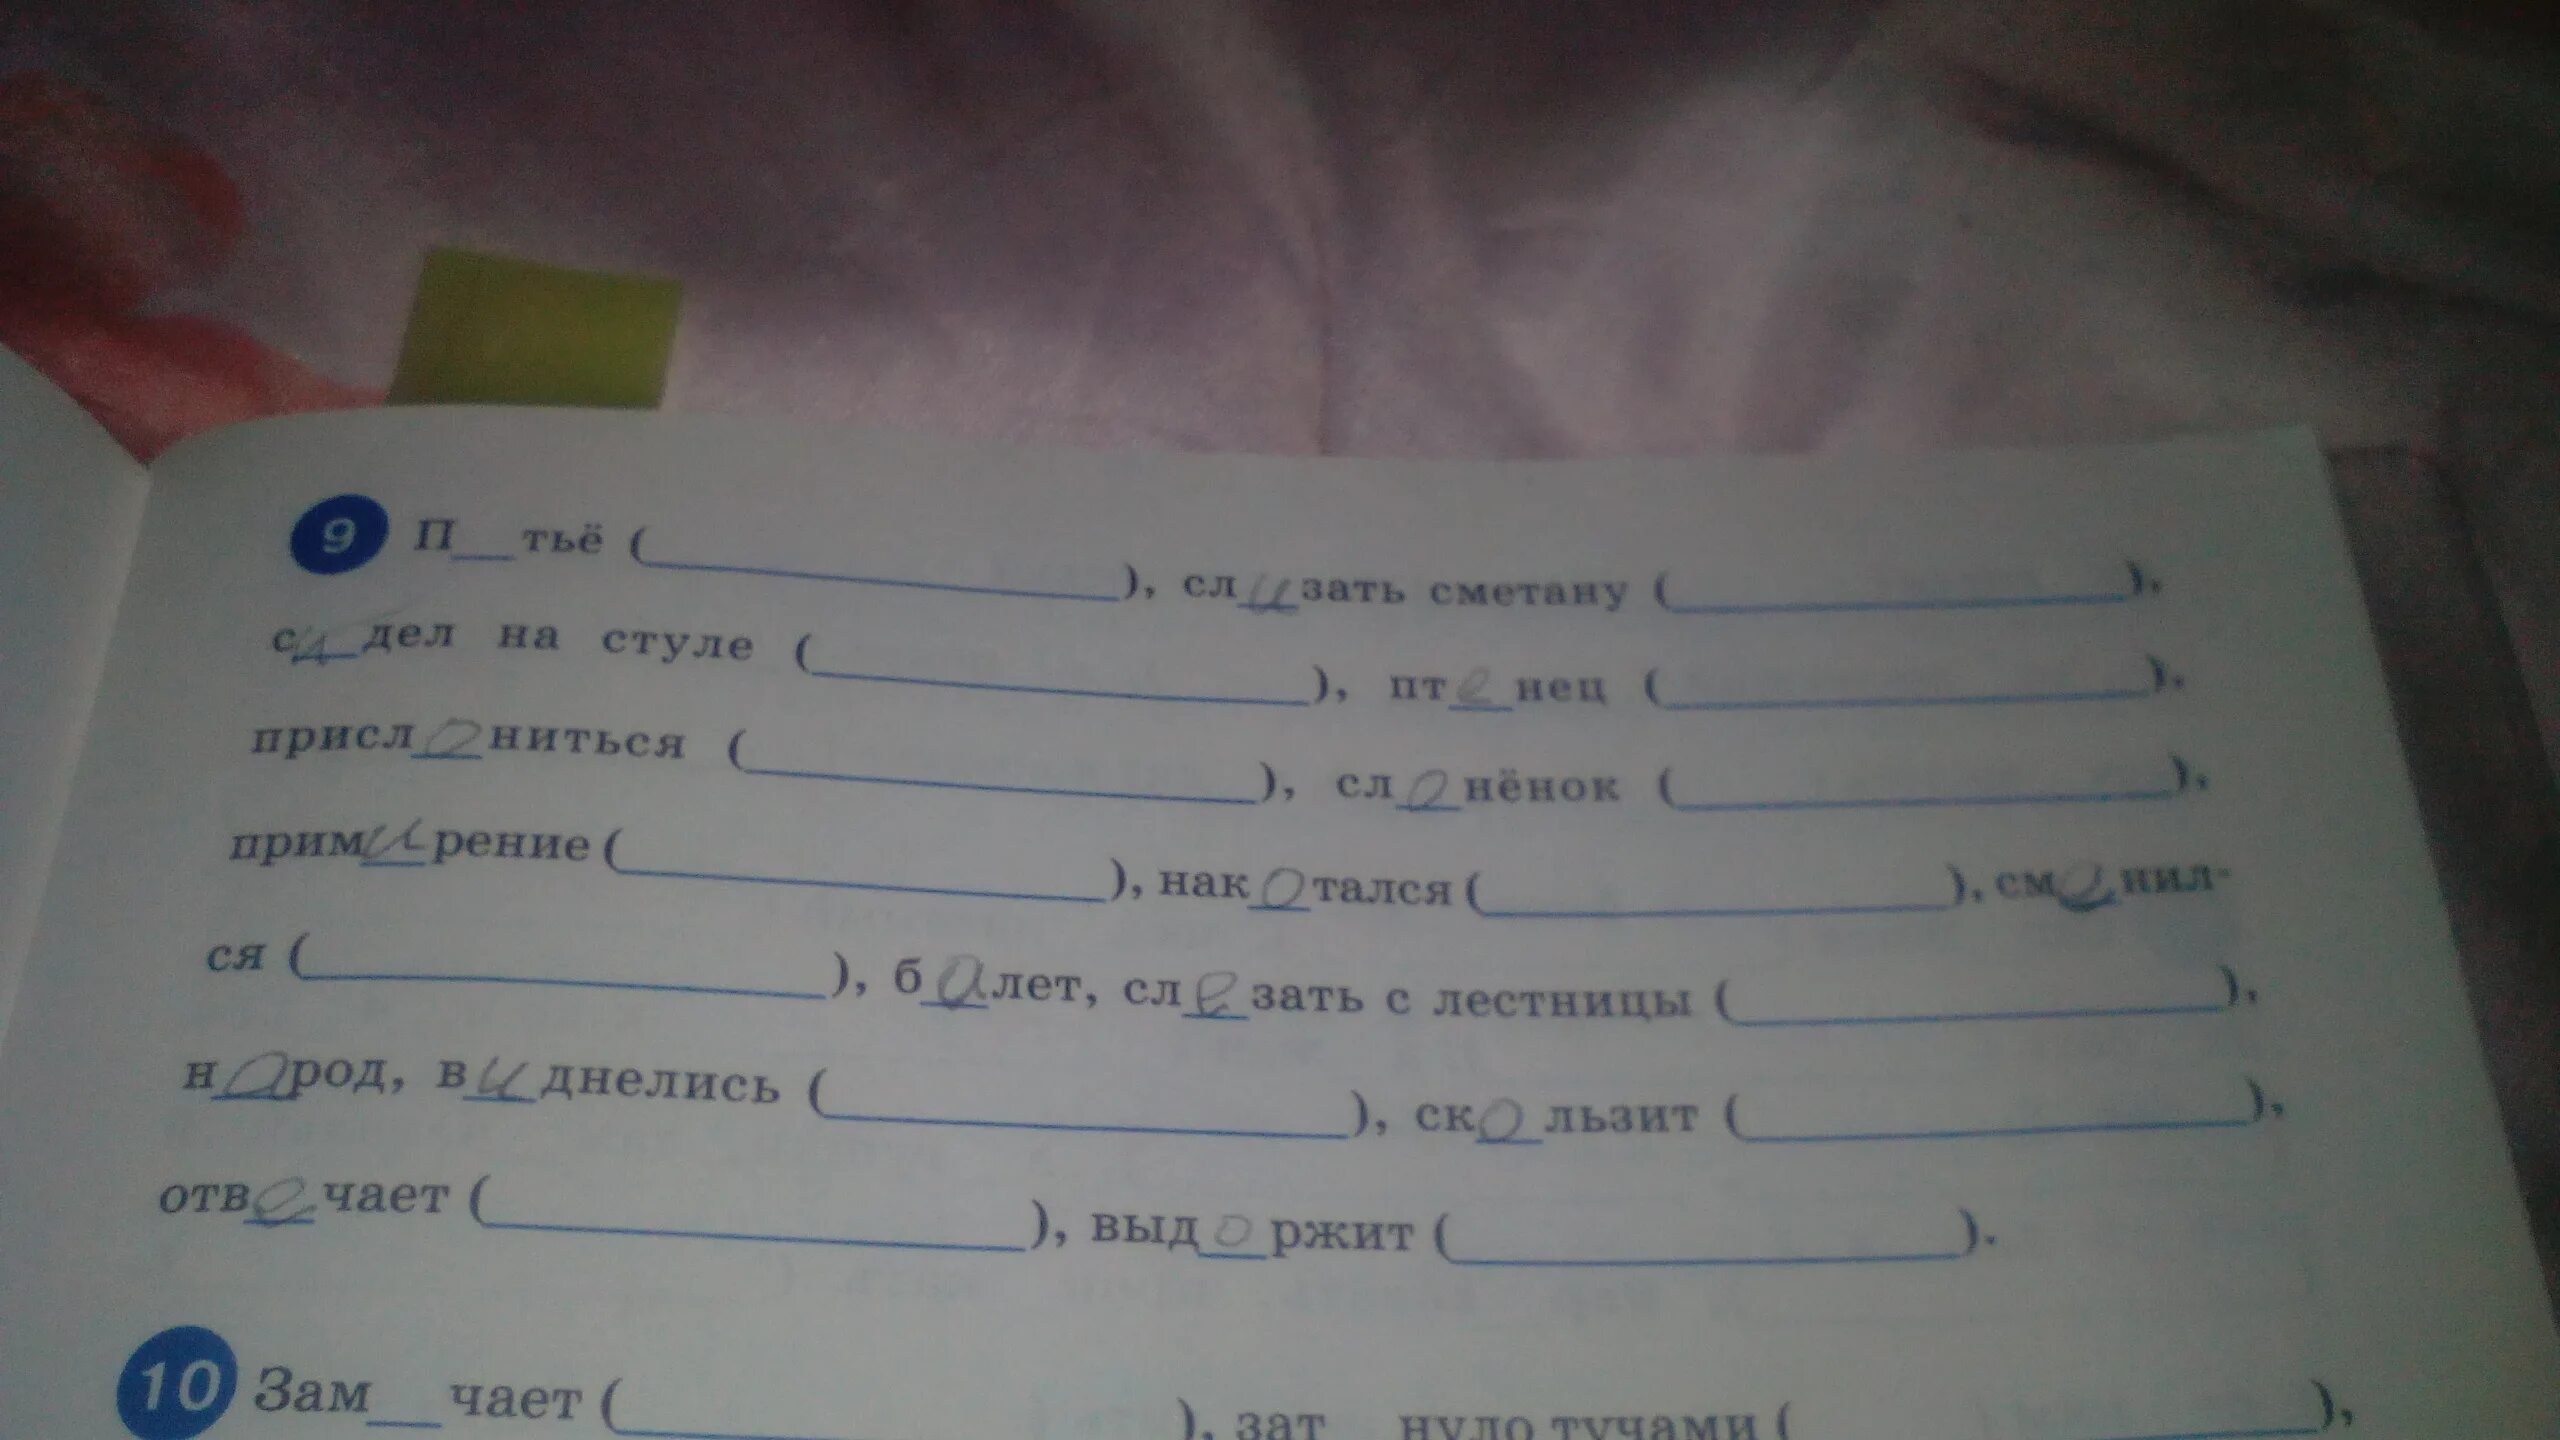 9 П__тьё (__________), слизать сметану (__________),
сидел на стуле (__________), птенец (__________),
прислониться (__________), слонёнок (__________),
примирение (__________), накотался (__________), сменил-
ся (__________), балет, слезать с лестницы (__________),
народ, виднелись (__________), скользит (__________),
отвечает (__________), выдоржит (__________).
10 Зам__чает (__________), зат__нуло тучами (__________),